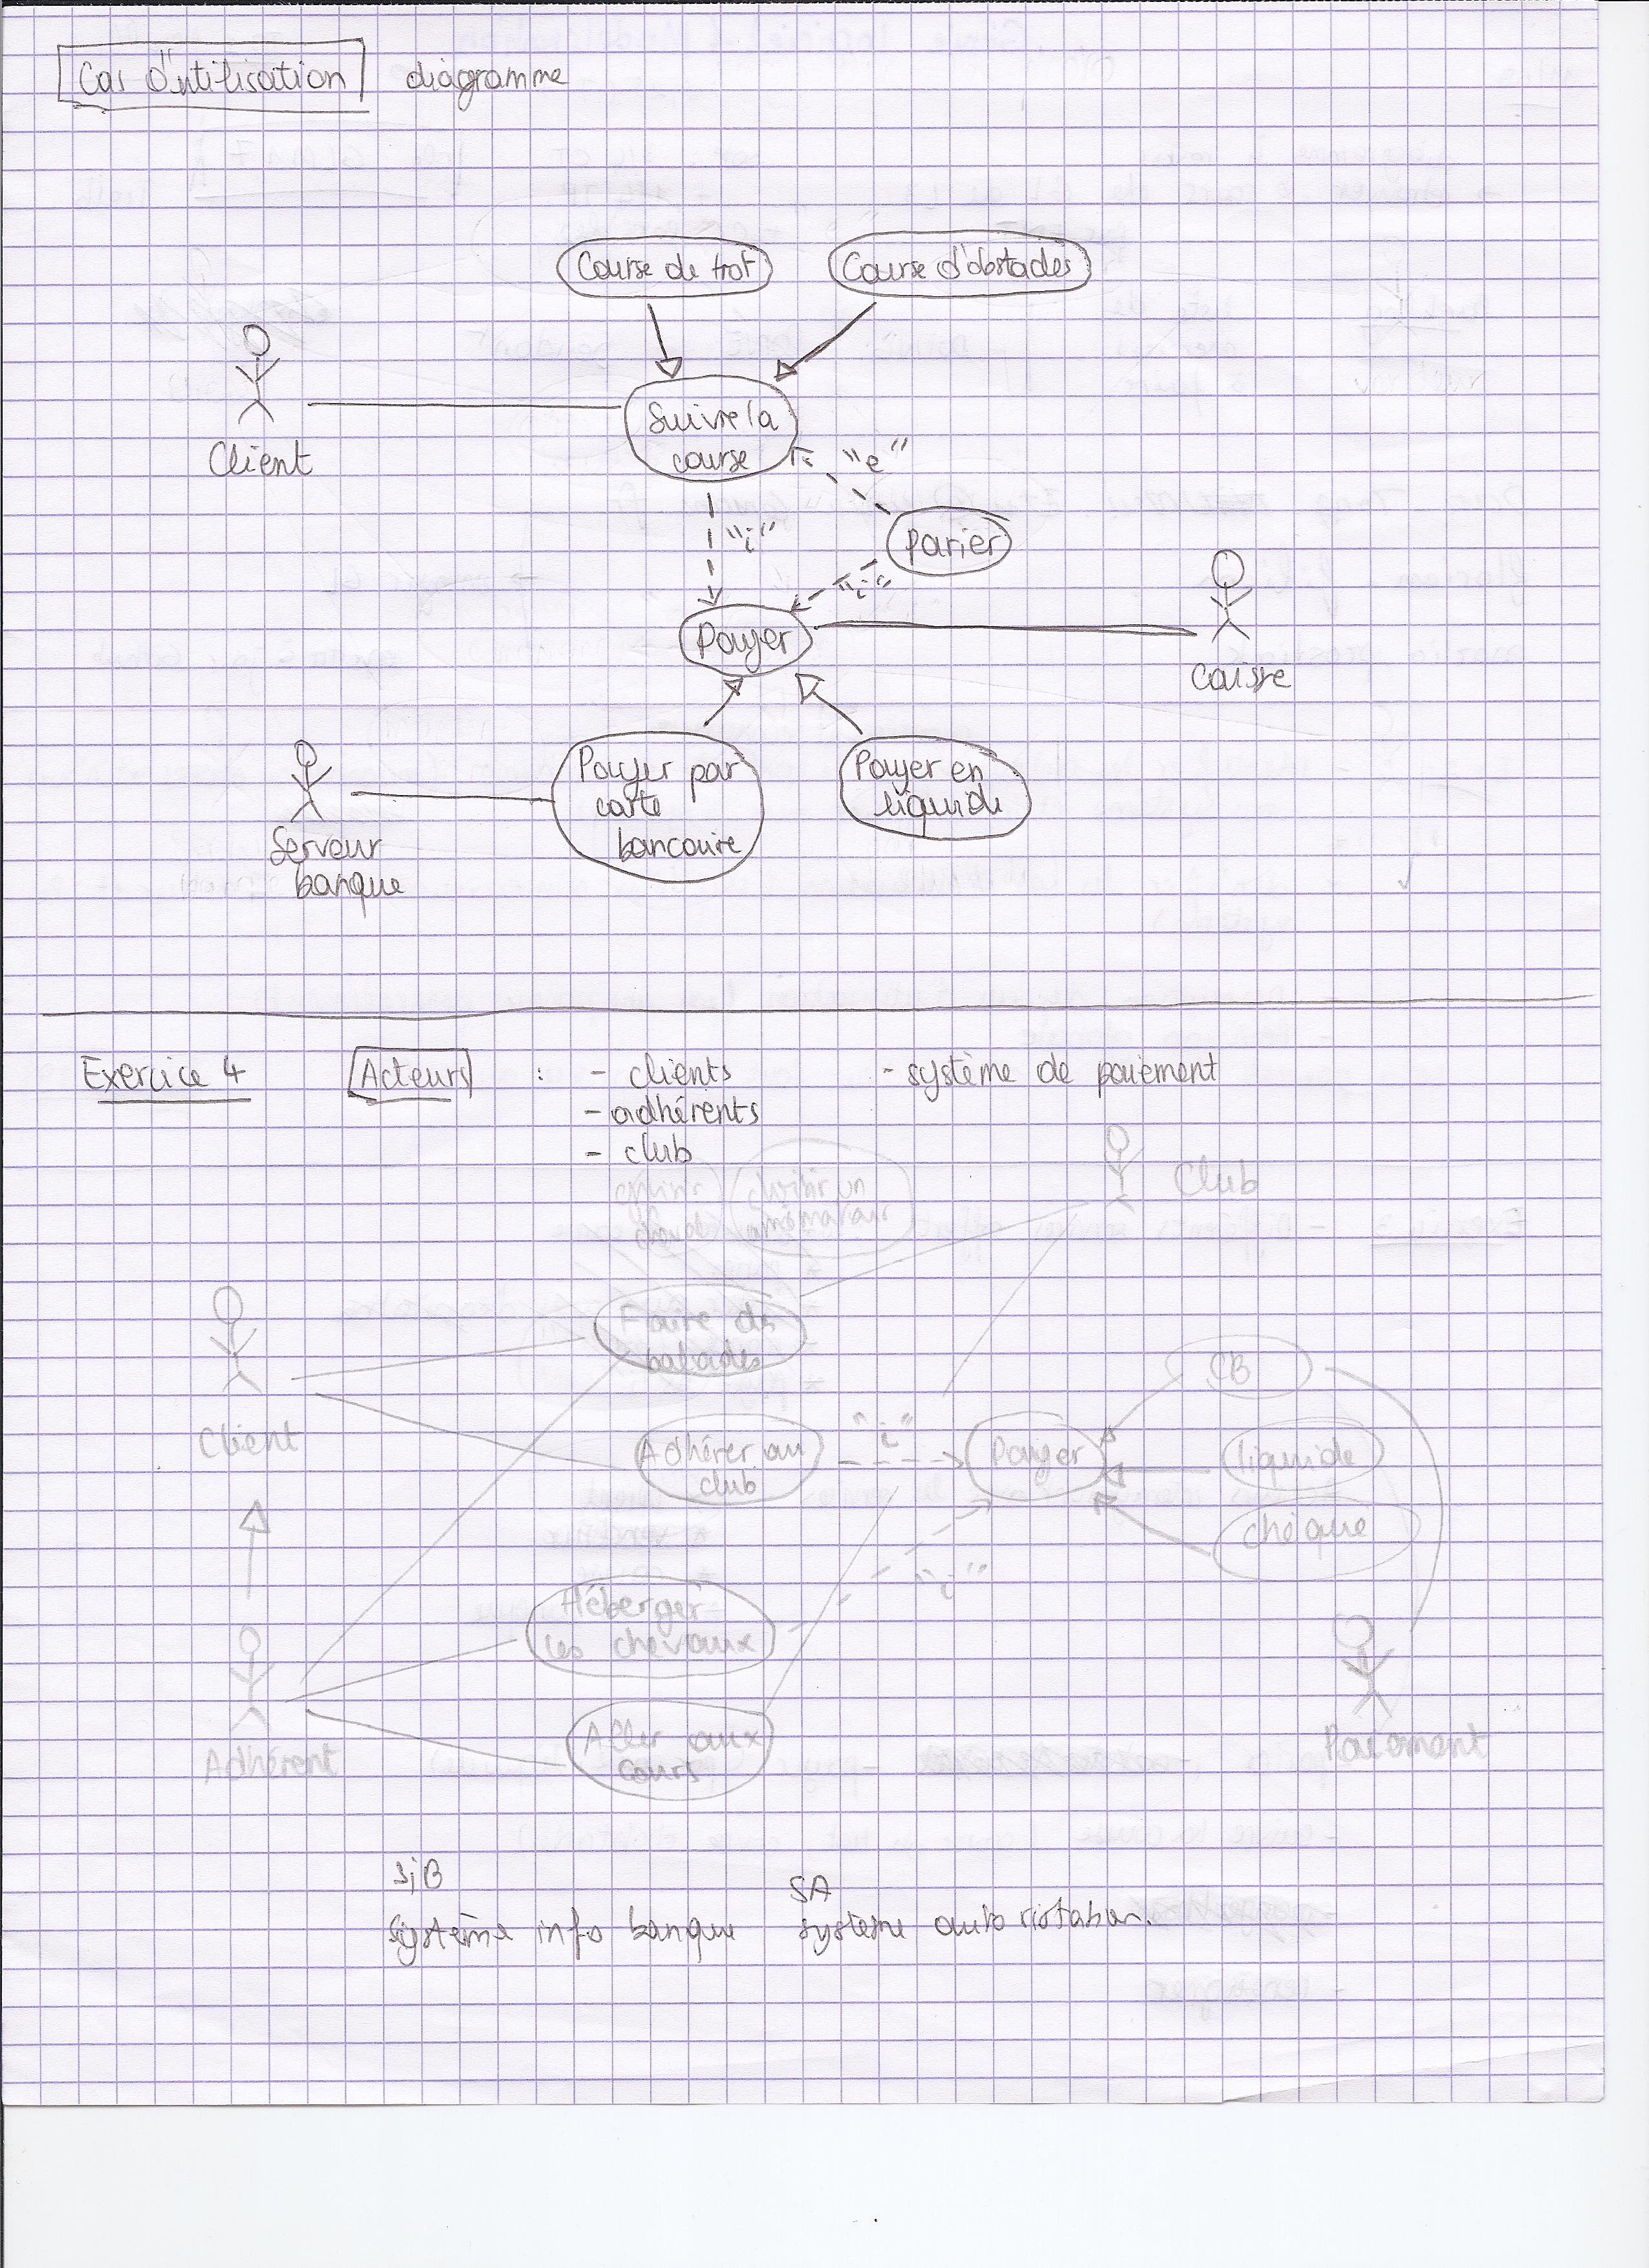 Cas d'utilisation diagramme
Course de trot
Course d'obstacles
Client
Suivre la
course
"e"
"i"
parier
"i"
Payer
caisse
Payer par
carte
bancaire
Payer en
liquide
Serveur
banque
Exercice 4 Acteurs : - clients - système de paiement
- adhérents
- club
choisir
cheval
choisir un
Club
Faire des
balades
CB
Client
Adhérer au
club
"i"
Payer
liquide
chéque
Héberger
les chevaux
"i"
Adhérent
Aller aux
cours
Paiement
SiB
Système info banque
SA
système